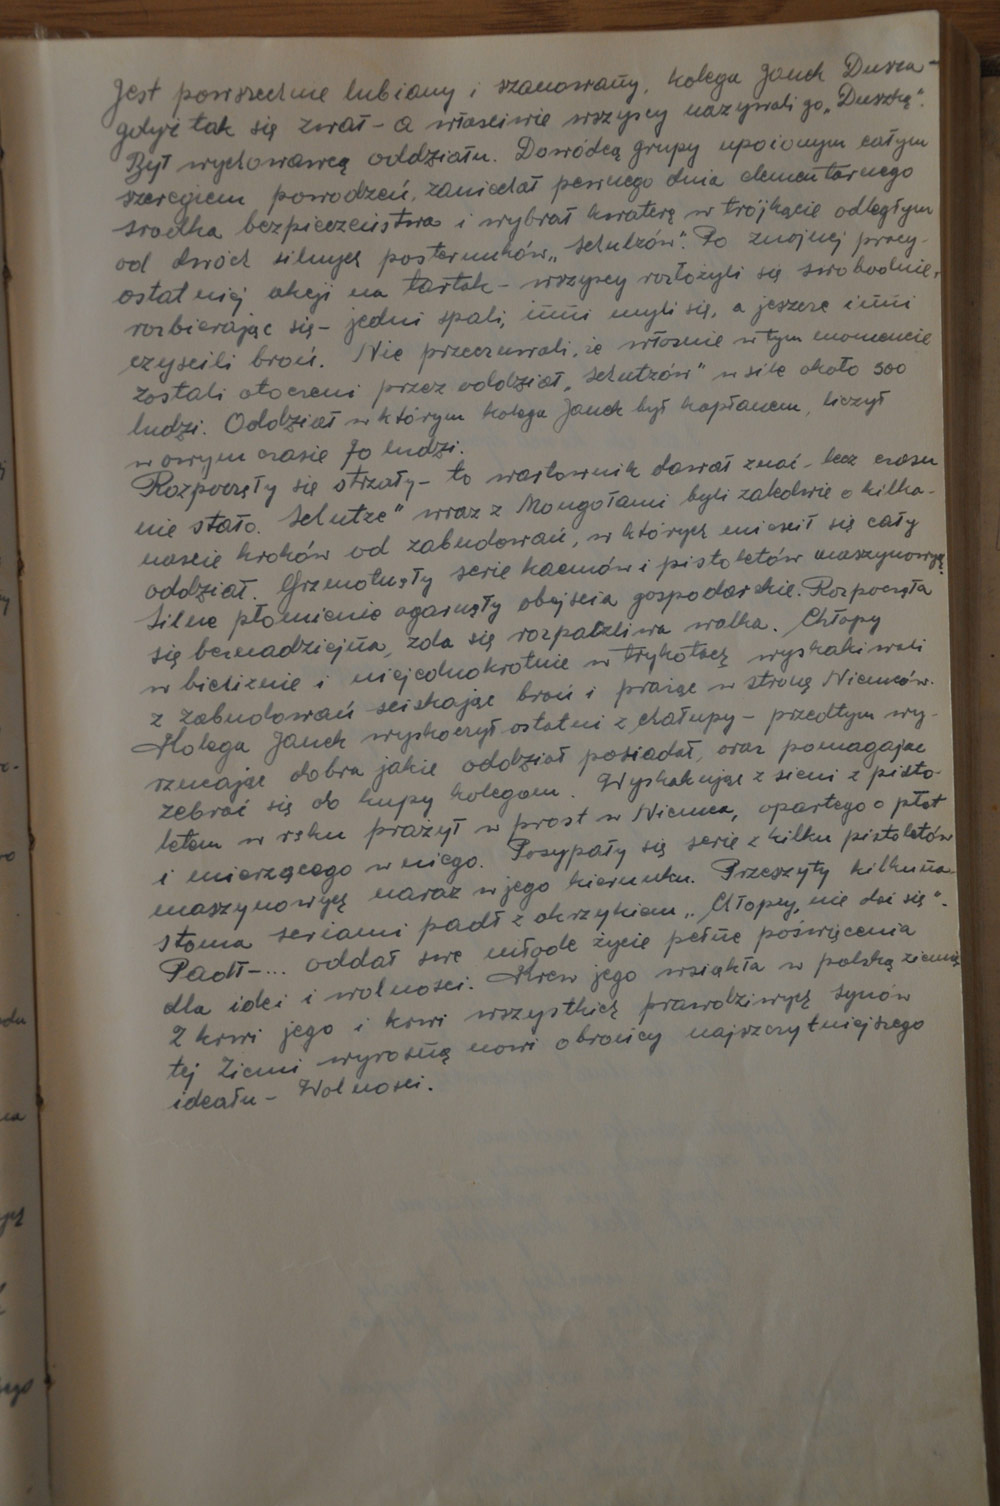 Jest powszechnie lubiany i szanowany, kolega Janek Dusza-
gdyż tak się zwał - a właściwie wszyscy nazywali go „Duszką".
Był wychowawcą oddziału. Dowódcą grupy upoionym całym
szeregiem powodzeń, zaniechał pewnego dnia elementarnego
środka bezpieczeństwa i wybrał kwaterę w trójkącie odległym
od dwóch silnych posterunków „Schutzów". Po znojnej pracy-
ostatniej akcji na tartak - wszyscy rozłożyli się swobodnie,
rozbierając się - jedni spali, inni myli się, a jeszcze inni
czyścili broń. Nie przeczuwali, że właśnie w tym momencie
zostali otoczeni przez oddział „Schutzów" w sile około 500
ludzi. Oddział w którym kolega Janek był kapłanem, liczył
w owym czasie 70 ludzi.
Rozpoczęły się strzały - to wartownik dawał znać - lecz czasu
nie stało. Schutze" wraz z Mongołami byli zaledwie o kilka-
naście kroków od zabudowań, w których mieścił się cały
oddział. Grzmotnęły serie kaemów i pistoletów maszynowych
Silne płomienie ogarnęły obejścia gospodarskie. Rozpoczęła
się beznadziejna, zda się rozpaczliwa walka. Chłopy
w bieliźnie i niejednokrotnie w trykotach wyskakiwali
z zabudowań ściskając broń i prażąc w stronę Niemców.
Kolega Janek wyskoczył ostatni z chałupy - przedtym wy-
rzucając dobra jakie oddział posiadał, oraz pomagając
zebrać się do kupy kolegom. Wyskakując z sieni z pisto-
letem w ręku prażył w prost w Niemca, opartego o płot
i mierzącego w niego. Posypały się serie z kilku pistoletów
maszynowych naraz w jego kierunku. Przeszyty kilkuna-
stoma seriami padł z okrzykiem „Chłopcy, nie dai się".
Padł - ... oddał swe młode życie pełne poświęcenia
dla idei i wolności. Krew jego wsiąkła w polską ziemię
Z krwi jego i krwi wszystkich prawdziwych synów
tej Ziemi wyrosną nowi obrońcy najszczytniejszego
ideału - Wolności.